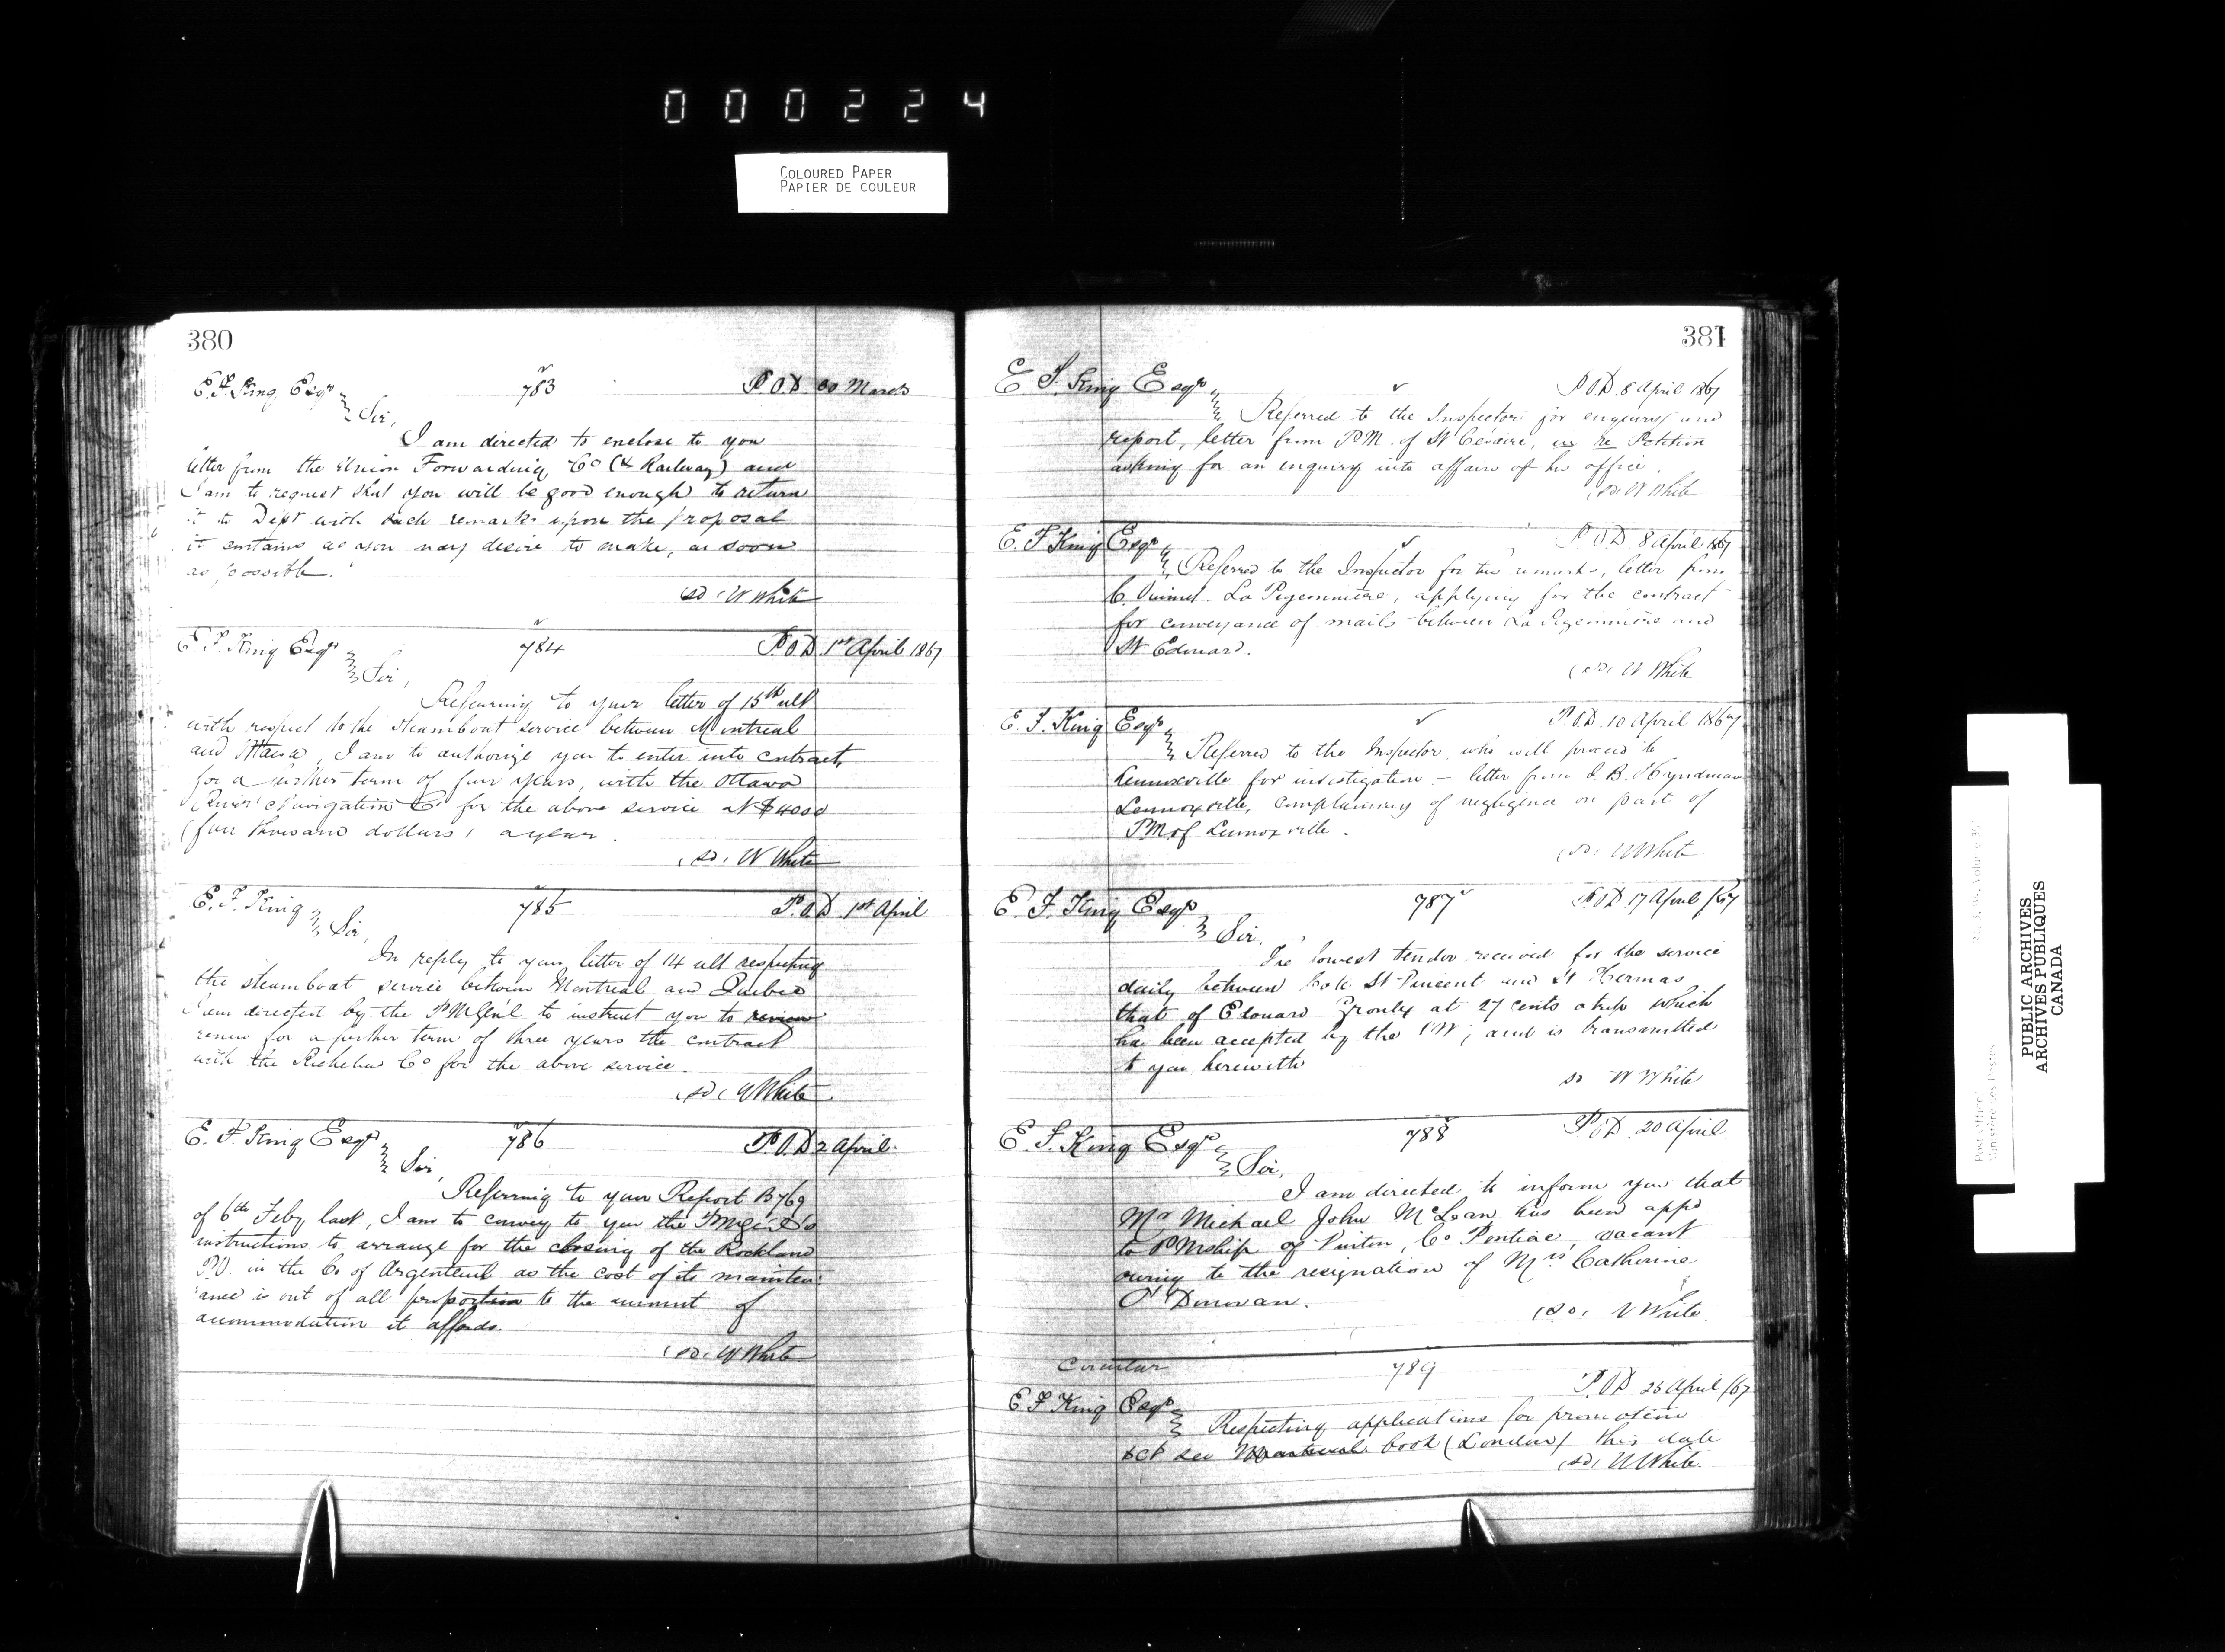 000224
COLOURED PAPER
PAPIER DE COULEUR
380
E. F. King Esqr 783 P.O.D. 30 March
Sir,
I am directed to enclose to you
letter from the Union Forwarding Co (& Railway) and
I am to request that you will be good enough to return
it to Dept with such remarks upon the proposal
it contains as you may desire to make, as soon
as possible.
(sd) W White
E F King Esqr 784 P.O.D. 1st April 1867
Sir,
Referring to your letter of 15th ult
with respect to the steamboat service between Montreal
and Ottawa, I am to authorize you to enter into contract
for a further term of four years, with the Ottawa
River Navigation Co for the above service at $4000
(four thousand dollars) a year.
(sd) W White
E. F. King 785 P.O.D 1st April
Sir,
In reply to your letter of 14 ult respecting
the steamboat service between Montreal and Quebec
I am directed by the PMGenl to instruct you to review
renew for a further term of three years the contract
with the Richelieu Co for the above service.
(sd) W White
E. F. King Esqr 786 P.O.D 2 April
Sir,
Referring to your Report B769
of 6th Feby last, I am to convey to you the PMGenl's
instructions to arrange for the closing of the Rockland
P.O. in the Co of Argenteuil as the cost of its mainten
ance is out of all proportion to the amount of
accommodation it affords.
(sd) W White
381
E F. King Esqr P.O.D. 8 April 1867
Referred to the Inspector for enquiry and
report, letter from P.M. of St Césaire, in re Petition
asking for an enquiry into affairs of his office.
(sd) W White
E. F King Esqr P.O.D. 8 April 1867
Referred to the Inspector for his remarks, letter from
C. Ouimet La Pigeonnière, applying for the contract
for conveyance of mails between La Pigeonnière and
St Edouard.
(sd) W White
E. F. King Esqr P.O.D. 10 April 1867
Referred to the Inspector, who will proceed to
Lennoxville for investigation - letter from B. Hyndman
Lennoxville, complaining of negligence on part of
PM of Lennoxville.
(sd) W White
E. F. King Esqr 787 P.O.D. 17 April /67
Sir,
The lowest tender received for the service
daily between Cote St Vincent and St Hermas
that of Edouard at 27 cents a trip which
has been accepted by the ; and is transmitted
to you herewith
sd W White
E. F. King Esqr 788 P.O.D. 20 April
Sir,
I am directed to inform you that
Mr Michael John McLean has been appd
to PMship of Vinton, Co Pontiac, vacant
owing to the resignation of Mrs Catherine
O'Donovan.
(sd) W White
Circular 789 P.O.D. 25 April /67
E F King Esqr
Respecting applications for promotion
see book (London) this date
(sd) W White.
PUBLIC ARCHIVES
ARCHIVES PUBLIQUES
CANADA